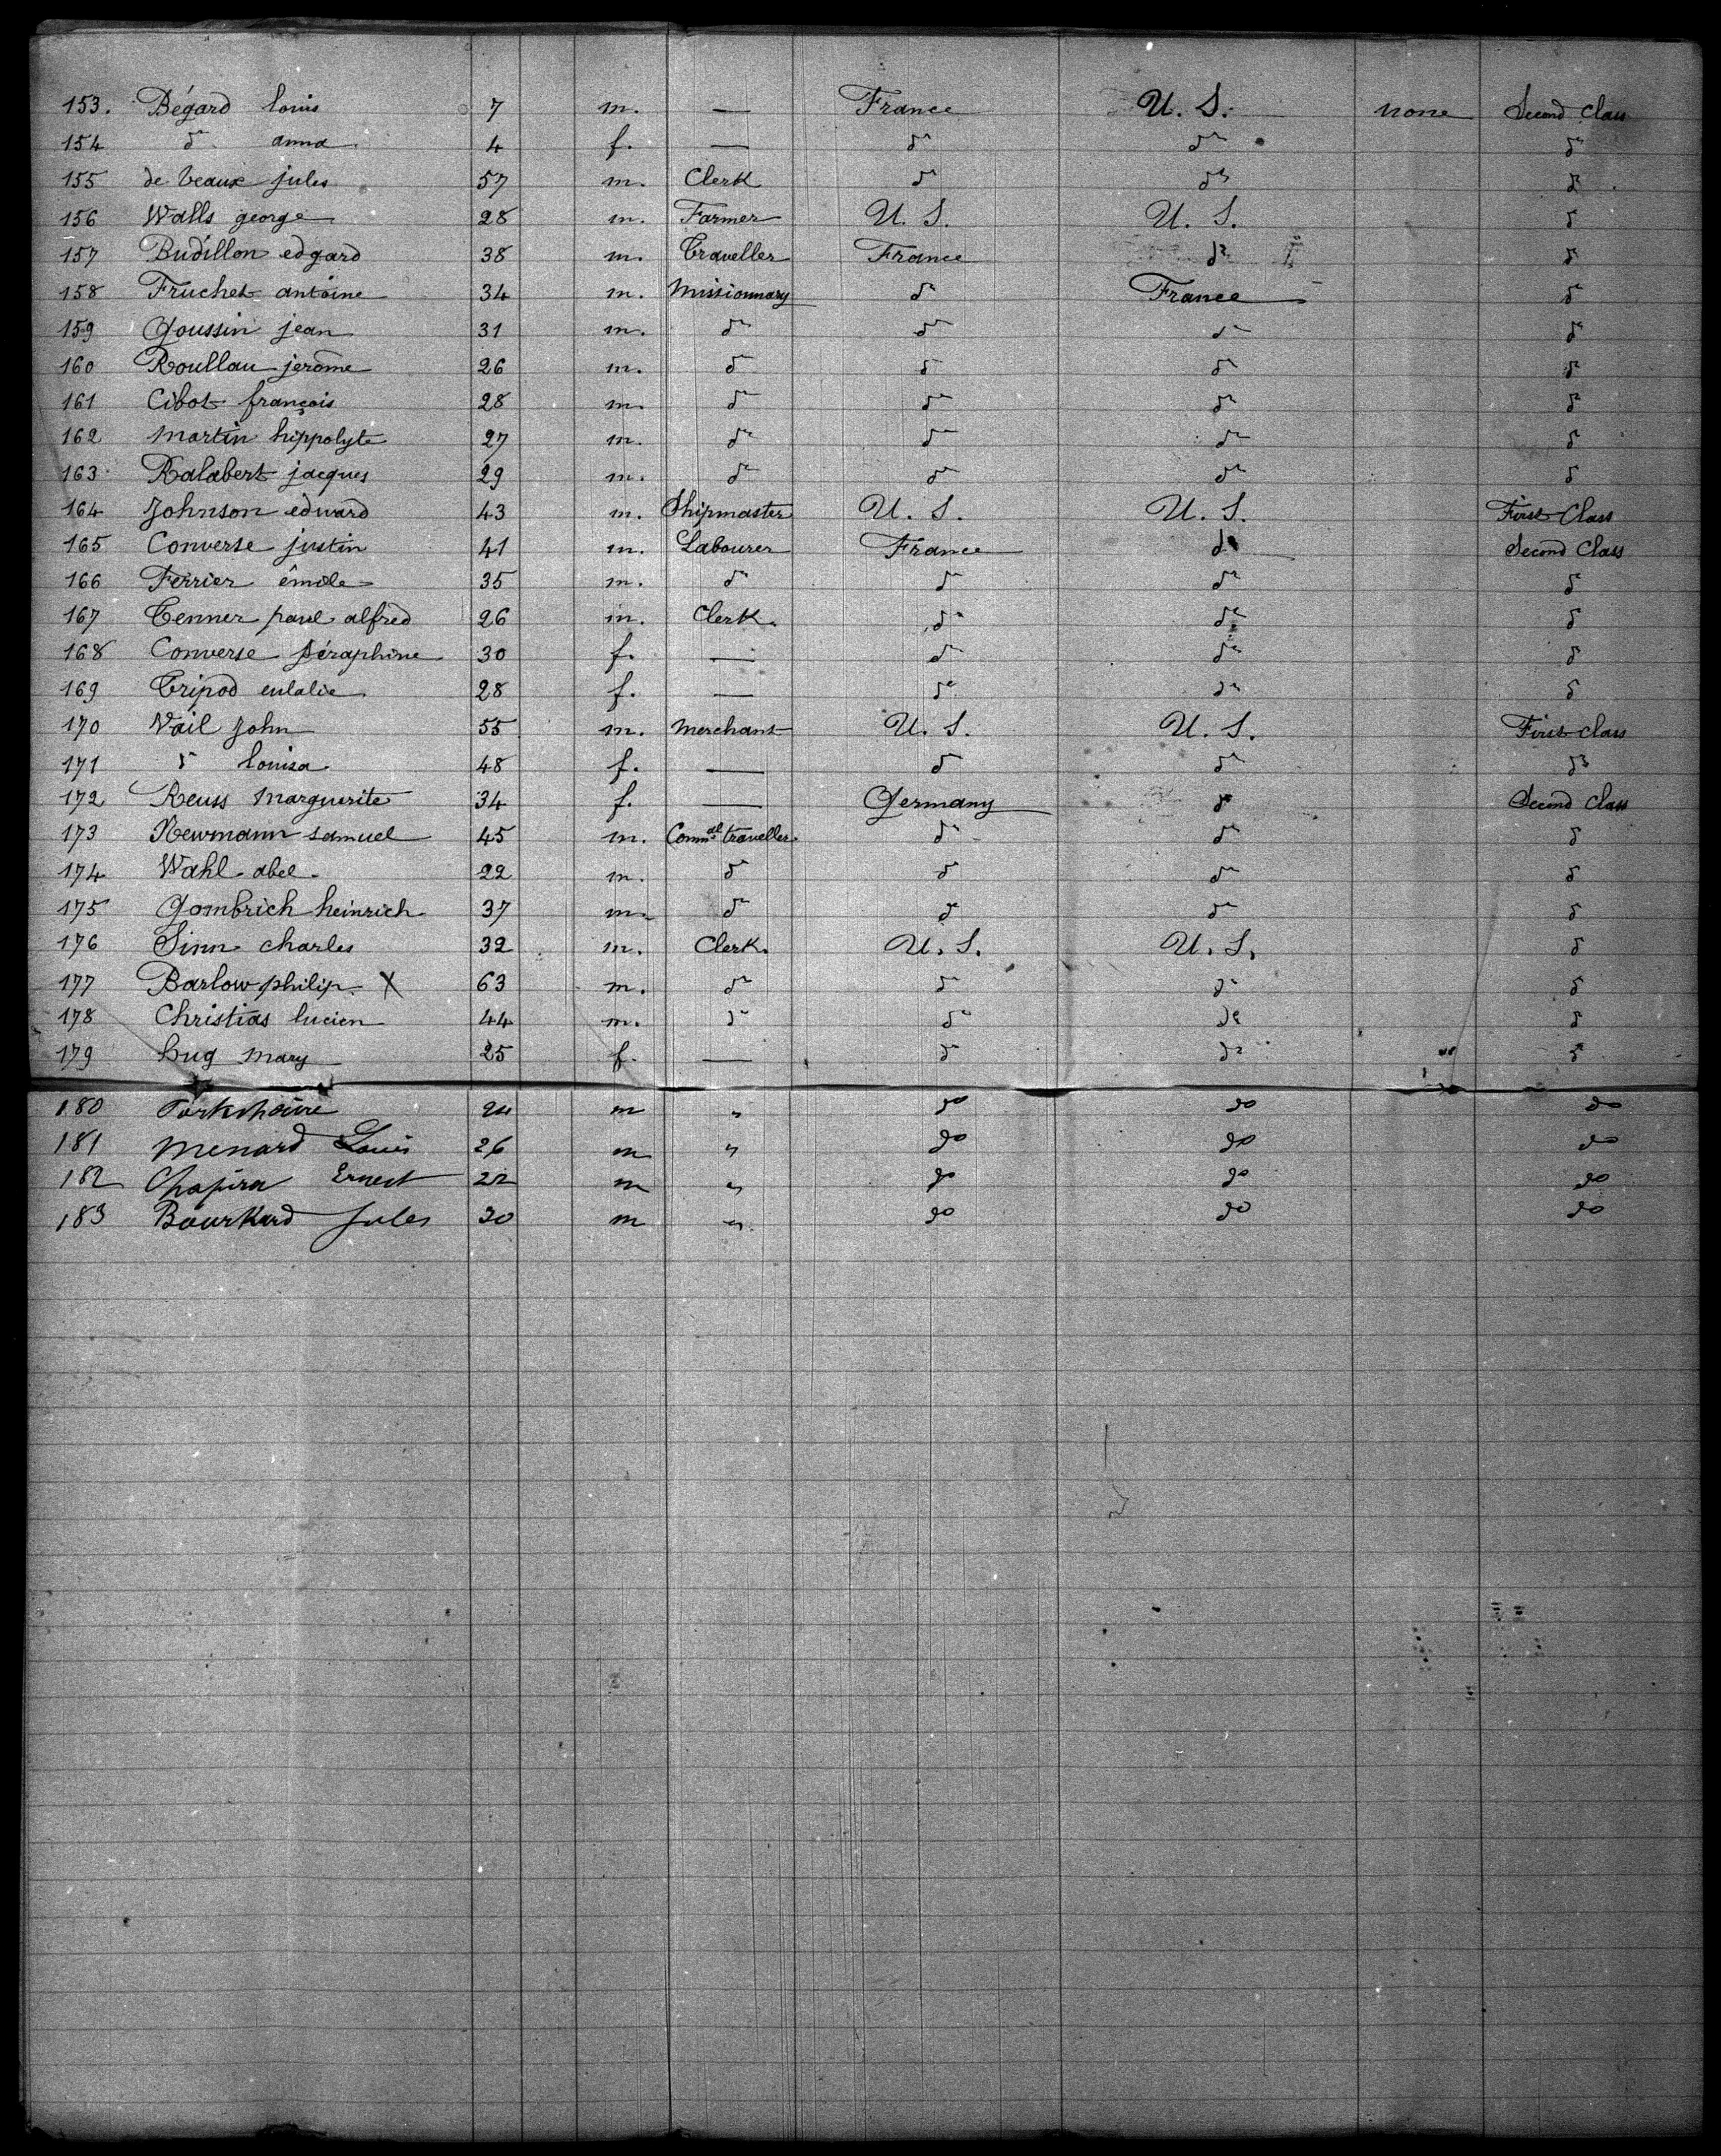 153. Bégard louis 7 m. — France U. S. none Second Class
154 do anna 4 f. — do do do
155 de Veaux jules 57 m. Clerk do do do
156 Walls george 28 m. Farmer U. S. U. S. do
157 Budillon edgard 38 m. Traveller France do do
158 Fruchet antoine 34 m. Missionnary do France do
159 Goussin jean 31 m. do do do do
160 Roullau jerôme 26 m. do do do do
161 Cibot françois 28 m. do do do do
162 Martin hippolyte 27 m. do do do do
163 Ralabert jacques 29 m. do do do do
164 Johnson edward 43 m. Shipmaster U. S. U. S. First Class
165 Converse justin 41 m. Labourer France do Second Class
166 Ferrier émile 35 m. do do do do
167 Tenner paul alfred 26 m. Clerk. do do do
168 Converse Séraphine 30 f. — do do do
169 Tripod eulalie 28 f. — do do do
170 Vail John 55 m. Merchant U. S. U. S. First class
171 do louisa 48 f. — do do do
172 Reuss Marguerite 34 f. — Germany do Second Class
173 Newmann samuel 45 m. Commal traveller do do do
174 Wahl abel 22 m. do do do do
175 Gombrich heinrich 37 m. do do do do
176 Sinn charles 32 m. Clerk. U. S. U. S. do
177 Barlow philip X 63 m. do do do do
178 Christias lucien 44 m. do do do do
179 hug mary 25 f. — do do do
180 24 m " do do do
181 Menard Louis 26 m " do do do
182 Chapira Ernest 22 m " do do do
183 Bourkard Jules 30 m " do do do